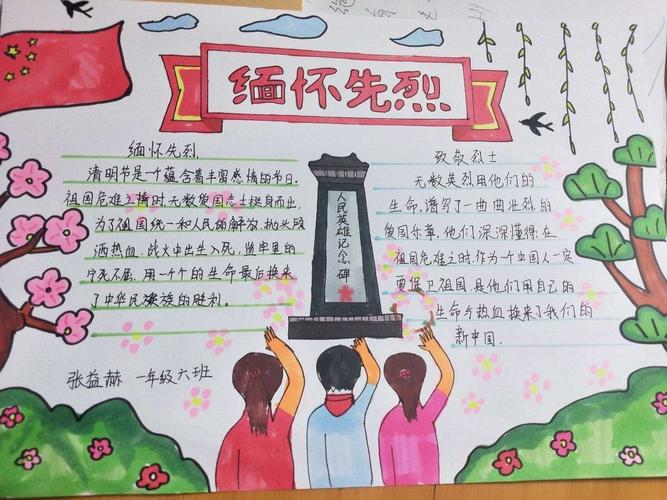 缅怀先烈
缅怀先烈
清明节是一个蕴含着丰富感情的节日.
祖国危难之情时无数爱国志士挺身而出,
为了祖国统一和人民的解放,抛头颅
洒热血.战火中出生入死,监牢里的
宁死不屈.用一个个的生命最后换来
了中华民族族的胜利.
张益赫 一年级六班
人民英雄记念碑
致敬烈士
无数英烈用他们的
生命,谱写了一曲曲壮烈的
爱国乐章,他们深深懂得在
祖国危难之时,作为一个中国人一定
要保卫祖国.是他们用自己的
生命与热血换来了我们的
新中国.